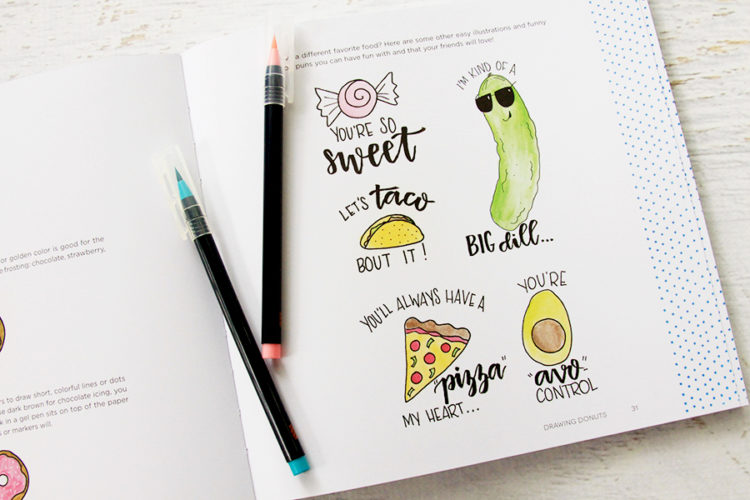 a different favorite food? Here are some other easy illustrations and funny
puns you can have fun with and that your friends will love!
YOU'RE SO
sweet
I'M KIND OF A
BIG dill...
LET'S taco
BOUT IT!
YOU'LL ALWAYS HAVE A
"pizza"
MY HEART...
YOU'RE
"avo"
CONTROL
DRAWING DONUTS 31
or golden color is good for the
frosting: chocolate, strawberry,
to draw short, colorful lines or dots
dark brown for chocolate icing, you
in a gel pen sits on top of the paper
or markers will.